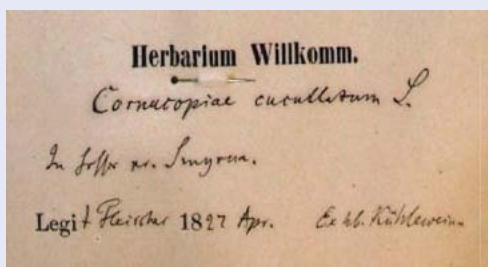 Herbarium Willkomm.
Cornucopiae cucullatum L.
In Smyrna.
Legit Fleischer 1827 Apr. Ex hb. Kühlewein